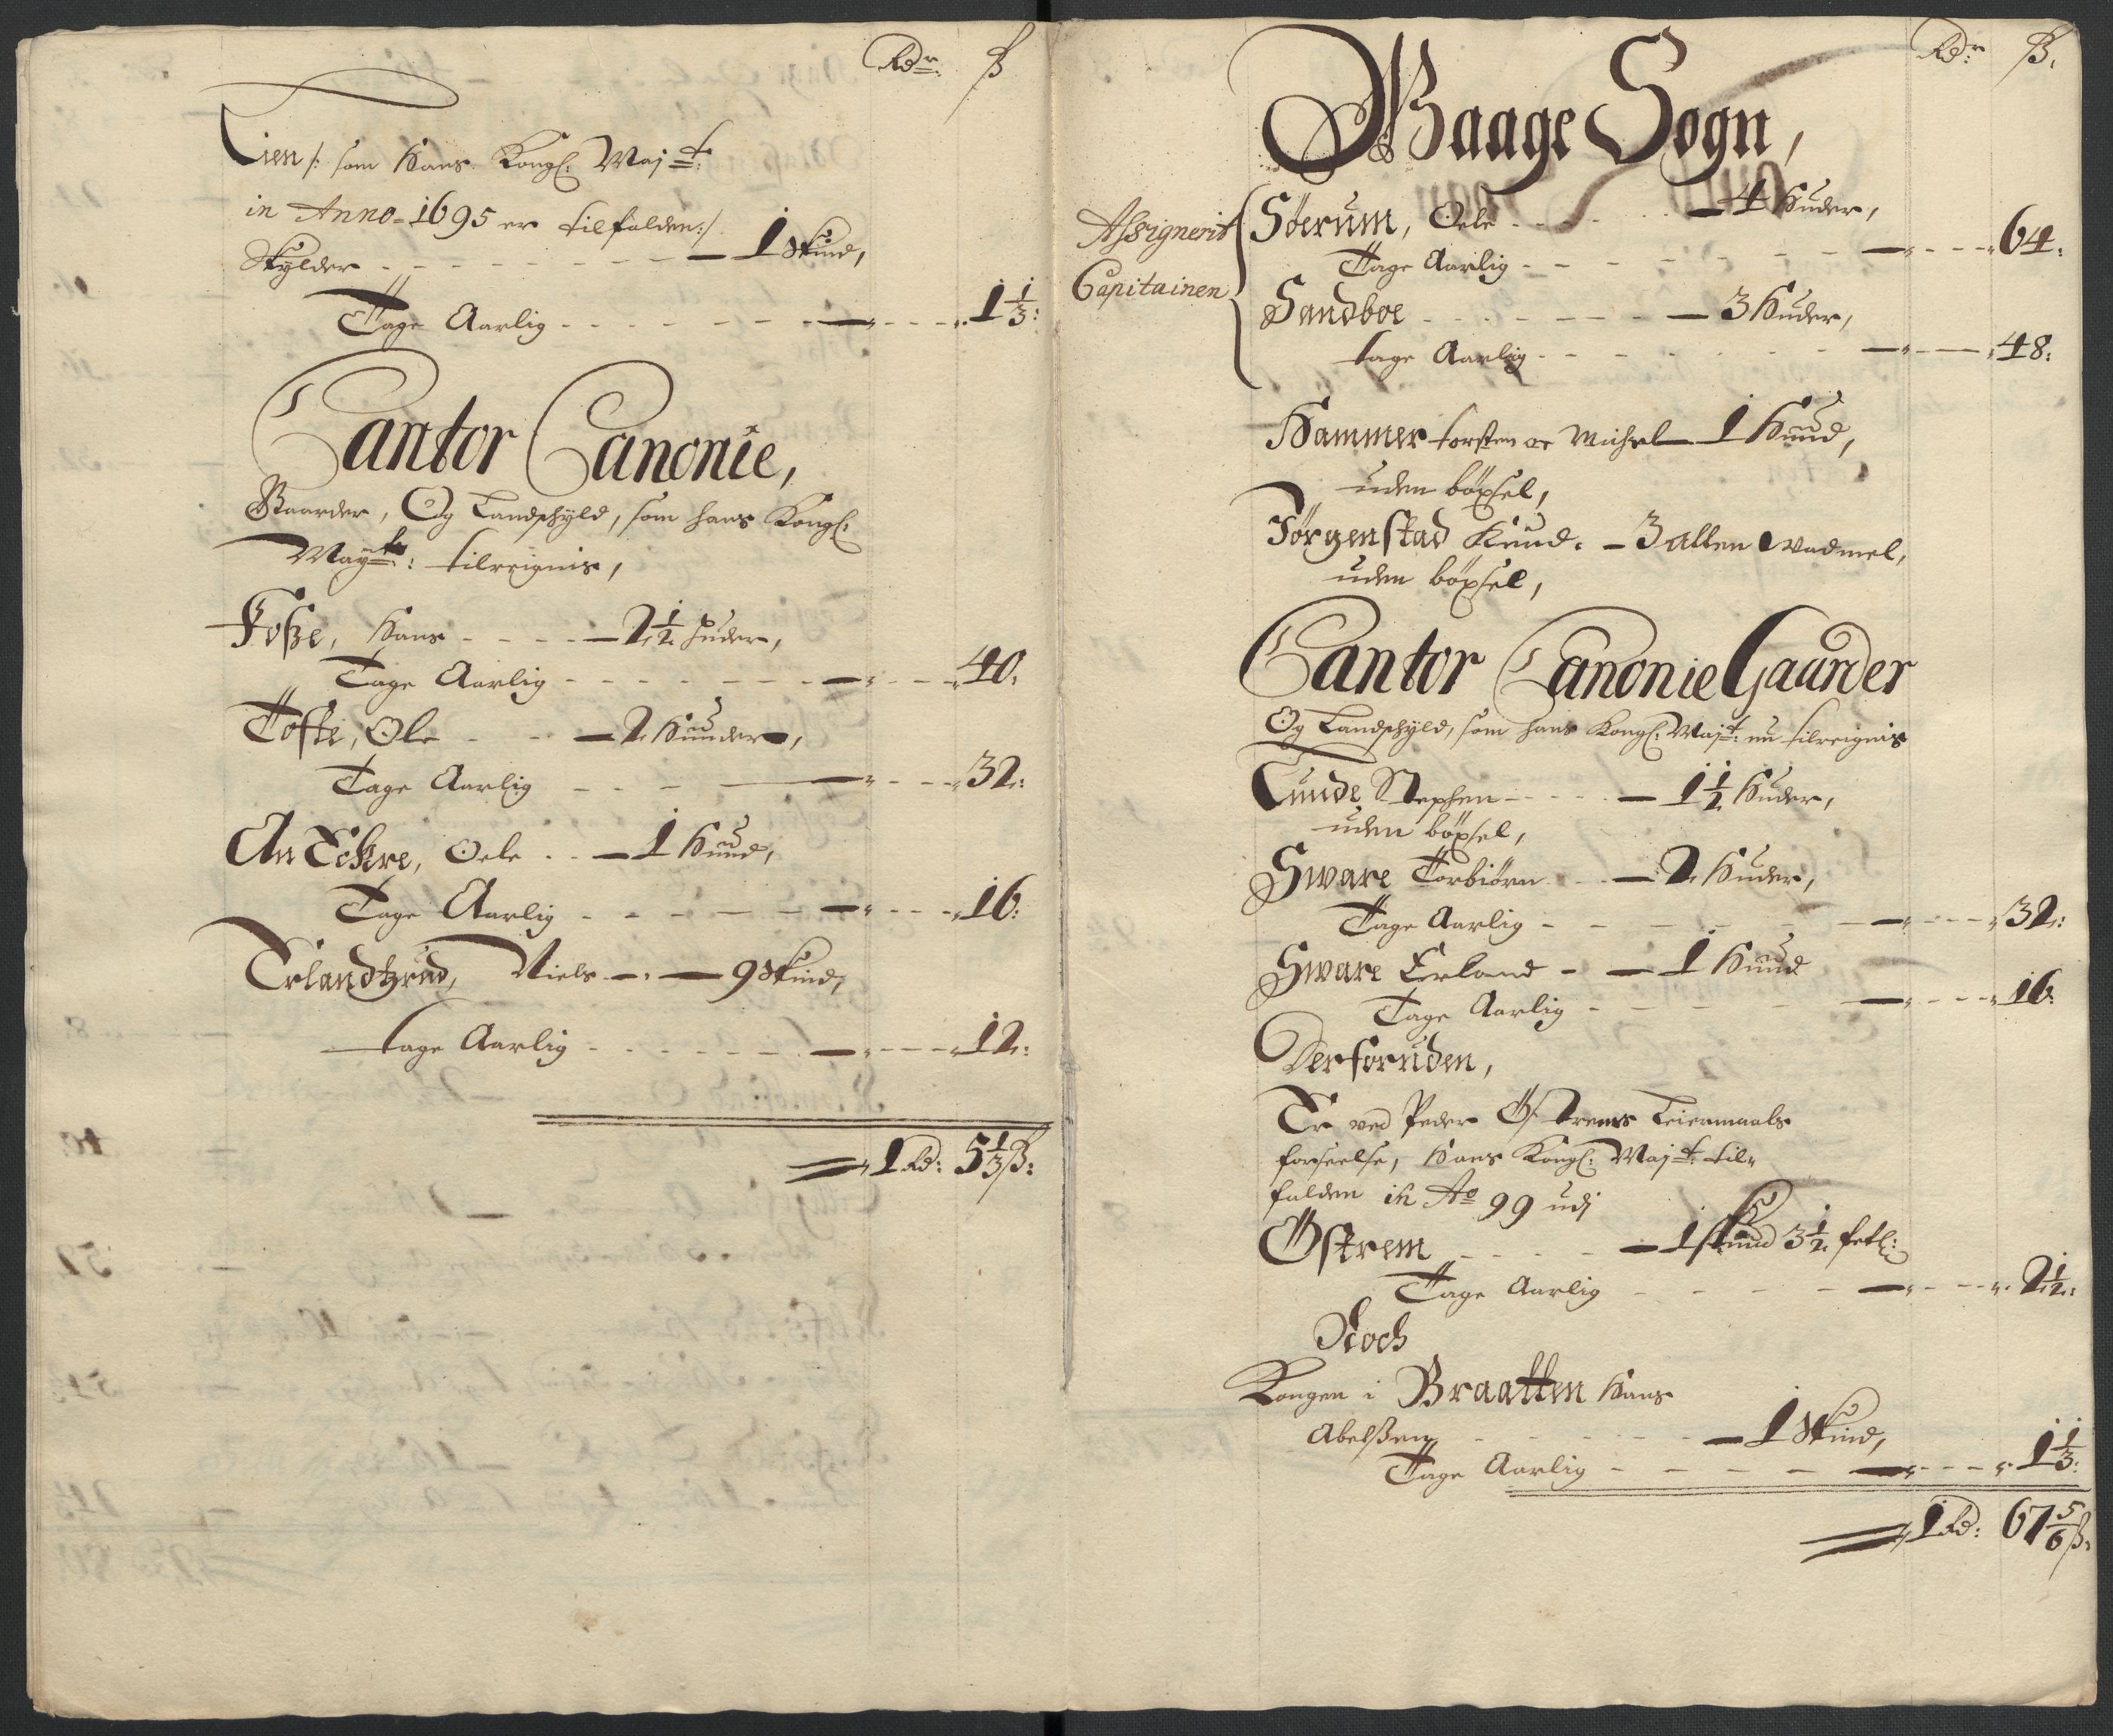 Rdr ß
Lien /: som Hans Kongl: Majt:
in Anno 1695 er tilfalden :/
Skylder - - - 1 Skind,
Tage Aarlig - - - 1 1/3:
Cantor Canonie,
Gaarder, Og Landschyld, som hans Kongl:
Mayt: tilreignis,
Foße, Hans - - - 2 1/2 huder,
Tage Aarlig - - - 40:
Tofte, Ole - - - 2 Huuder,
Tage Aarlig - - - 32:
An Eckre, Oele - - 1 Huud,
Tage Aarlig - - - 16:
Erlandtzrud, Niels - - 9 Skind,
tage Aarlig - - - 12:
1 Rd: 5 1/3 ß:
Rdr: ß.
Waage Sogn,
Assignerit Capitainen
Sørum, Oele - - - 4 Huder,
Tage Aarlig - - - 64:
Sandboe - - - 3 Huder,
tage Aarlig - - - 48:
Hammer torsten oc Michel 1 Huud,
uden böxsel,
Jørgenstad Knud. - 3 allen Wadmel,
uden böxsel,
Cantor Canonie Gaarder
Og Landschyld, som hans Kongl: Majt: nu tilreignis
Lunde Stephen - - - 1 1/2 Huder,
uden böxsel,
Sware Torbiörn - - 2 Huder,
Tage Aarlig - - - 32:
Sware Erland - - 1 Huud
Tage Aarlig - - - 16:
Derforuden,
Er ved Peder Östrems Leiermaals
forseelse, Hans Kongl: Majt: til-
falden in Ao 99 udj
Östrem - - - 1 skind 3 1/2 setl:
Tage Aarlig - - - 2 1/2:
Noch
Kongen i Braatten Hans
Abelßen - - - 1 Skind,
Tage Aarlig - - - 1 1/3:
1 Rd: 67 5/6 ß.